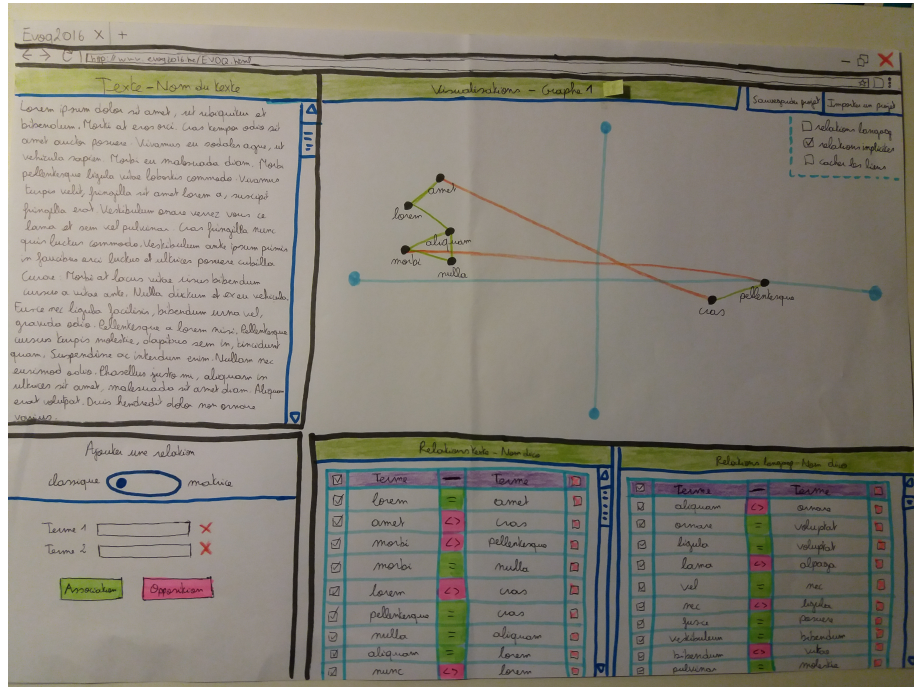 Evoq2016 X +
http://www.evoq2016.me/EVOQ.html
Texte - Nom du texte
Visualisations - Graphe 1
Sauvegarder projet
Importer un projet
relations langage
relations implicites
cacher les liens
Lorem ipsum dolor sit amet, sit vulputate et
bibendum. Morbi at eros orci. Cras tempor odio sit
amet auctor posuere. Vivamus eu sodales agno, ut
vehicula sapien. Morbi eu malesuada diam. Morbi
pellentesque ligula vitae lobortis commodo. Vivamus
turpis velit, fringilla sit amet lorem a, suscipit
fringilla erat. Vestibulum onare verrez vous ce
lama et sem vel pulvinar. Cras fringilla nunc
quis luctus commodo. Vestibulum ante ipsum primis
in faucibus orci luctus et ultrices posuere cubilia
Curae: Morbi at lacus vitae risus bibendum
cursus a vitae ante. Nulla dictum et ex eu vehicula.
Fusce nec ligula facilisis, bibendum urna vel,
gravida odio. Pellentesque a lorem nisi. Pellentesque
cursus turpis molestie, dapibus sem in, tincidunt
quam. Suspendisse ac interdum enim. Nullam nec
euismod odio. Phasellus justo mi, aliquam in
ultrices sit amet, malesuada sit amet diam. Aliquam
erat volutpat. Duis hendrerit dolor non ornare
varius.
amet
lorem
aliquam
morbi
nulla
pellentesque
cras
Ajouter une relation
classique
matrice
Terme 1
Terme 2
Association
Opposition
Relations texte - Nom dico
Terme — Terme
lorem = amet
amet <> cras
morbi <> pellentesque
morbi = nulla
lorem <> cras
pellentesque = cras
nulla = aliquam
aliquam = lorem
nunc <> lorem
Relations langag - Nom dico
Terme — Terme
aliquam <> ornare
ornare = voluptat
ligula = voluptat
lama <> alpaga
vel = nec
nec <> ligula
fusce = posuere
vestibulum = bibendum
bibendum <> vitae
pulvinar = molestie